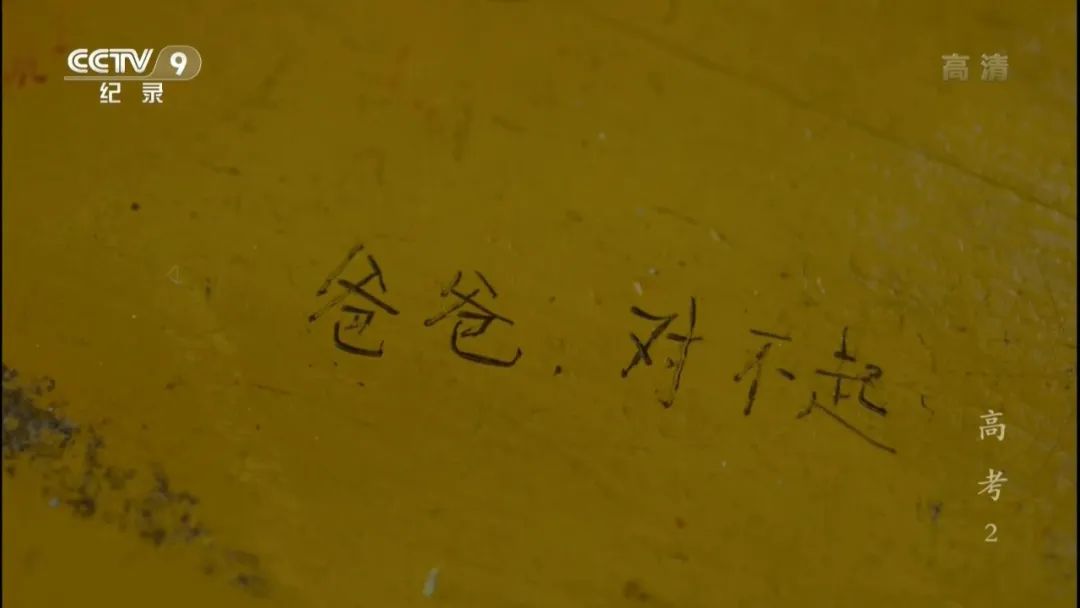 CCTV 9
纪录
高清
爸爸.对不起.
高考2